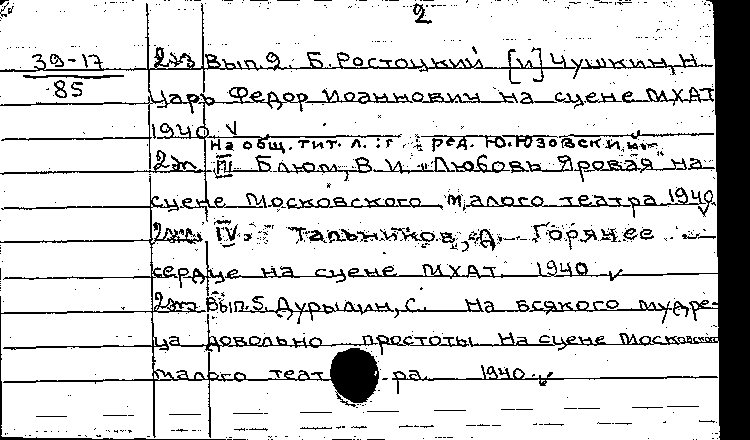 2
39-17
85
2эз Вып.2. Б. Ростоцкий [и] Чушкин, Н
Царь Федор Иоаннович на сцене МХАТ
1940 V
На общ. тит. л.: ред. Ю. Юзовский
III Блюм, В. И. "Любовь Яровая" на
сцене Московского малого театра 1940
IV. Тальников, Д. Горячее
сердце на сцене МХАТ. 1940 V
2эз Вып.5. Дурылин, С. На всякого мудре-
ца довольно простоты На сцене Московского
малого театра 1940 V